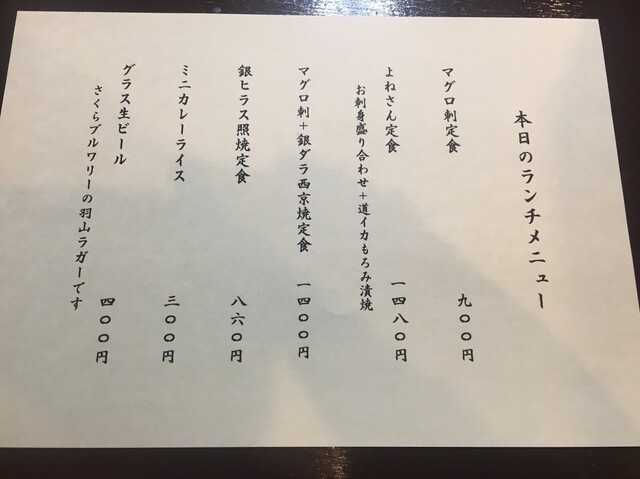 本日のランチメニュー
マグロ刺定食 九〇〇円
よねさん定食 一四八〇円
お刺身盛り合わせ+道イカもろみ漬焼
マグロ刺+銀ダラ西京焼定食 一四〇〇円
銀ヒラス照焼定食 八六〇円
ミニカレーライス 三〇〇円
グラス生ビール 四〇〇円
さくらブルワリーの羽山ラガーです